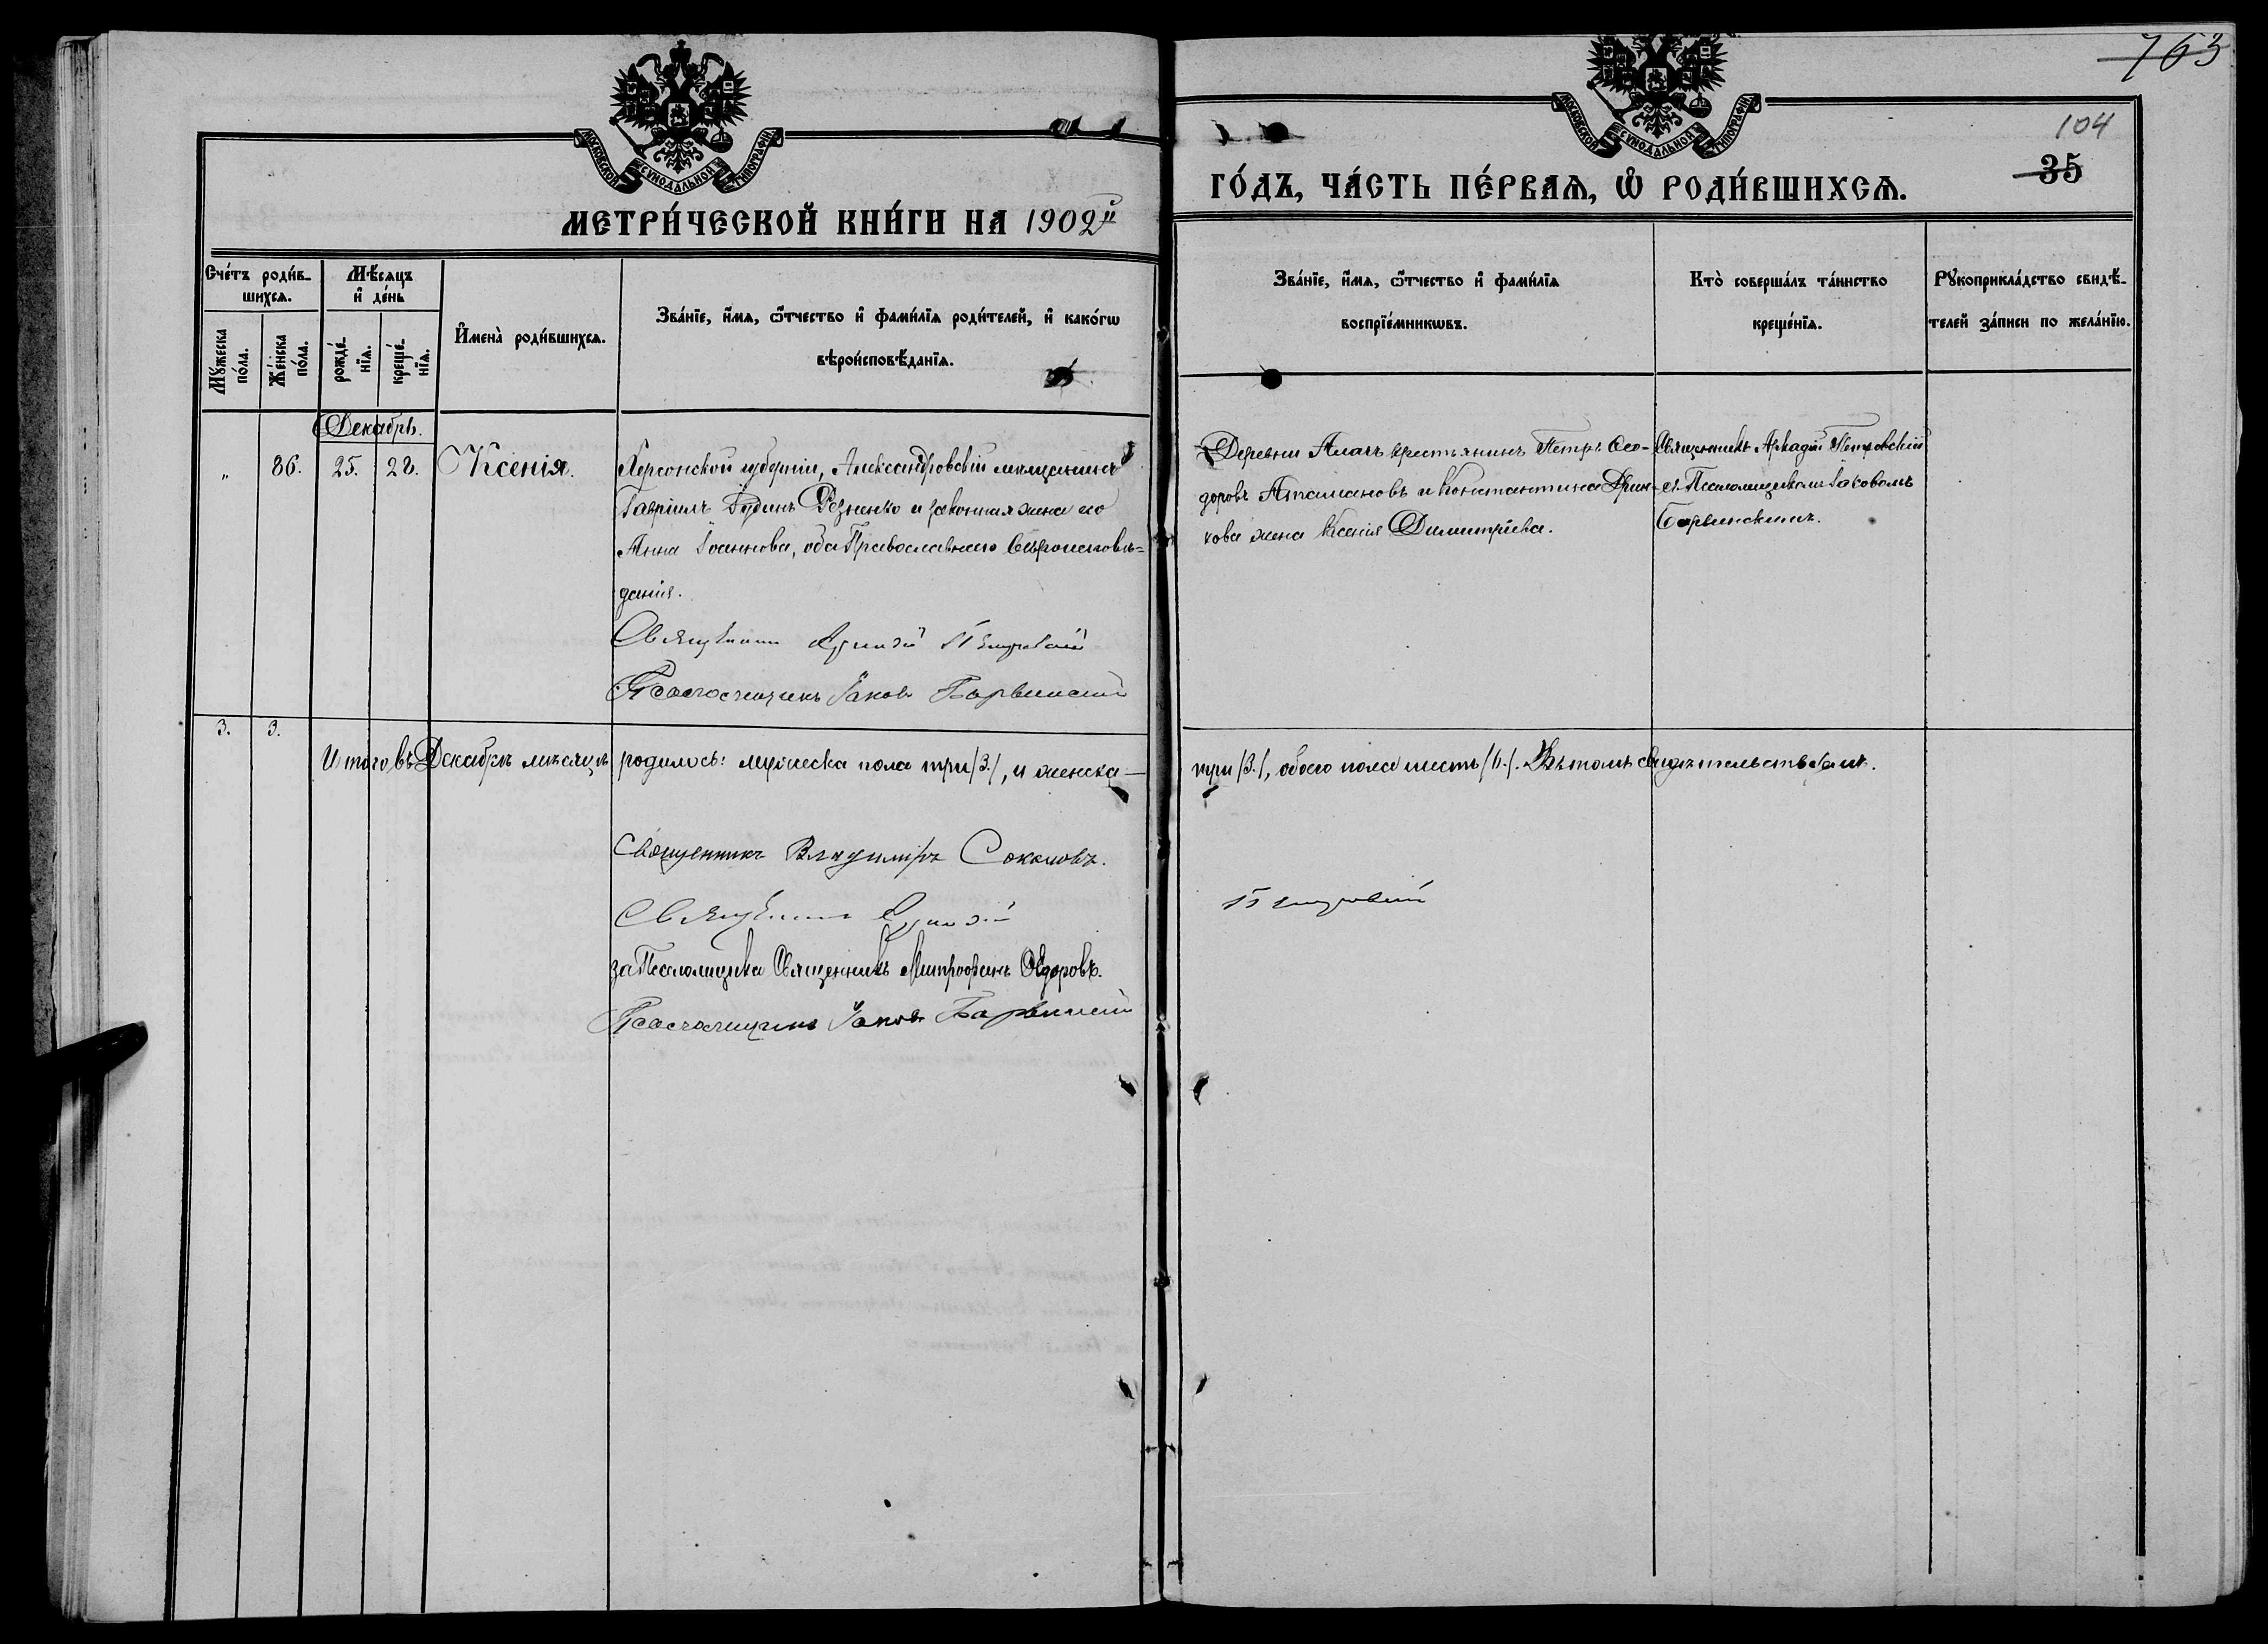 763
104
35
МОСКОВСКОЙ СѴНОДАЛЬНОЙ ТИПОГРАФІИ
МОСКОВСКОЙ СѴНОДАЛЬНОЙ ТИПОГРАФІИ
МЕТРИ́ЧЕСКОЙ КНИ́ГИ НА 1902й
ГО́ДЪ, ЧА́СТЬ ПЕ́РВАѦ, Ѿ РОДИ́ВШИХСѦ.
Сче́тъ роди́в-
шихсѧ.
Мꙋ́жеска
по́ла.
Же́нска
по́ла.
Мѣ́сѧцъ
и҆ де́нь
рожде́-
нїѧ.
креще́-
нїѧ.
И҆мена̀ роди́вшихсѧ.
Зва́нїе, и҆́мѧ, ѻ҆́тчество и҆ фами́лїѧ роди́телей, и҆ како́гѡ
вѣроисповѣ́данїѧ.
Зва́нїе, и҆́мѧ, ѻ҆́тчество и҆ фами́лїѧ
воспрїе́мникѡвъ.
Кто̀ соверша́лъ та́инство
креще́нїѧ.
Рꙋкоприкла́дство свидѣ́-
телей за́писи по жела́нїю.
Декабрь.
„ 86. 25. 28. Ксенія.
Херсонской губерніи, Александровскій мѣщанинъ
Гавріилъ Іудинъ Резненко и законная жена его
Анна Іоаннова, оба Православнаго вѣроисповѣ=
данія.
Священникъ Аркадій Петровскій
Псаломщикъ Іаковъ Барвинскій
Деревни Алачъ крестьянинъ Петръ Ѳео-
доровъ Атамановъ и Константина
кова жена Ксенія Димитріева.
Священникъ Аркадій Петровскій
съ Псаломщикомъ Іаковомъ
Барвинскимъ.
3. 3.
Итого въ Декабрѣ мѣсяцѣ родилось: мужеска пола три /3./, и женска —
три /3./, обоего пола шесть /6./. Въ томъ свидѣтельствуемъ.
Священникъ Владимиръ Соколовъ.
Священникъ Аркадій Петровскій
за Псаломщика Священникъ Митрофанъ Ѳедоровъ.
Псаломщикъ Іаковъ Барвинскій